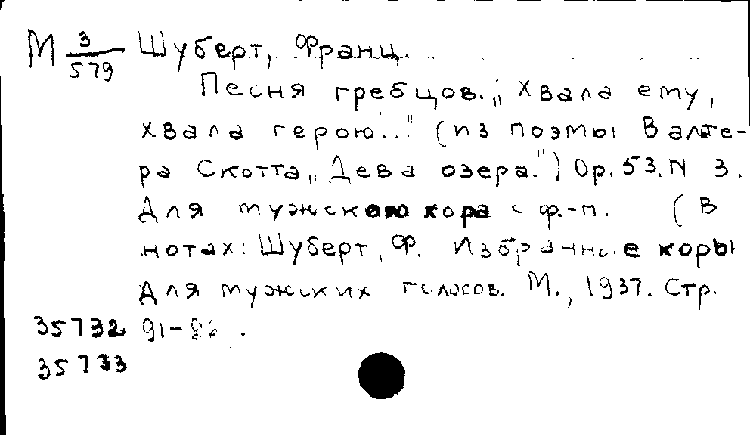 М 3/579 Шуберт, Франц.
Песня гребцов. "Хвала ему,
хвала герою..." (из поэмы Валте-
ра Скотта "Дева озера".) Op. 53. N 3.
Для мужского хора с ф.-п. (В
нотах: Шуберт, Ф. Избранные хоры
для мужских голосов. М., 1937. Стр.
35732 91-
35733